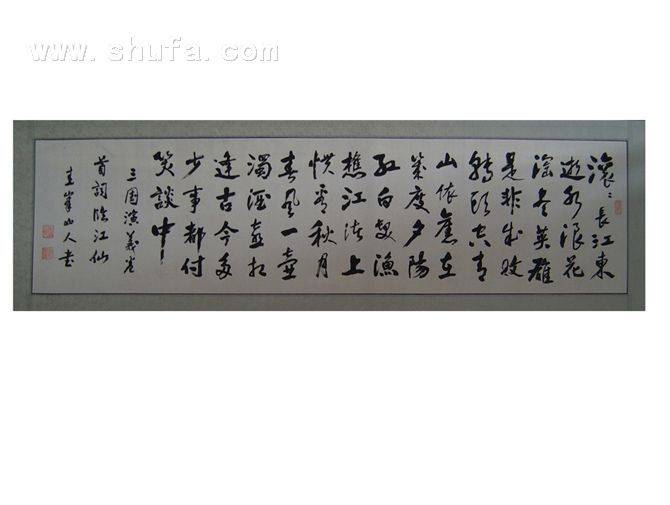 www.shufa.com
滾〻長江東
逝水浪花
淘尽英雄
是非成敗
轉頭空青
山依舊在
幾度夕陽
紅白髮漁
樵江渚上
慣看秋月
春風一壺
濁酒喜相
逢古今多
少事都付
笑談中
三國演義卷
首詞臨江仙
峯山人书